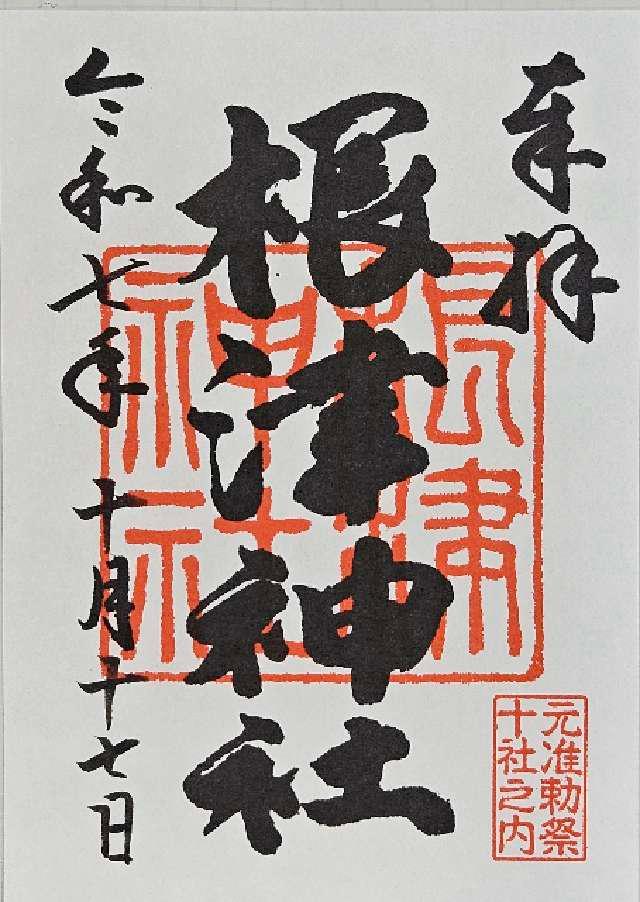 奉拝
根津神社
令和七年十月十七日
根津神社
元准勅祭
十社之内